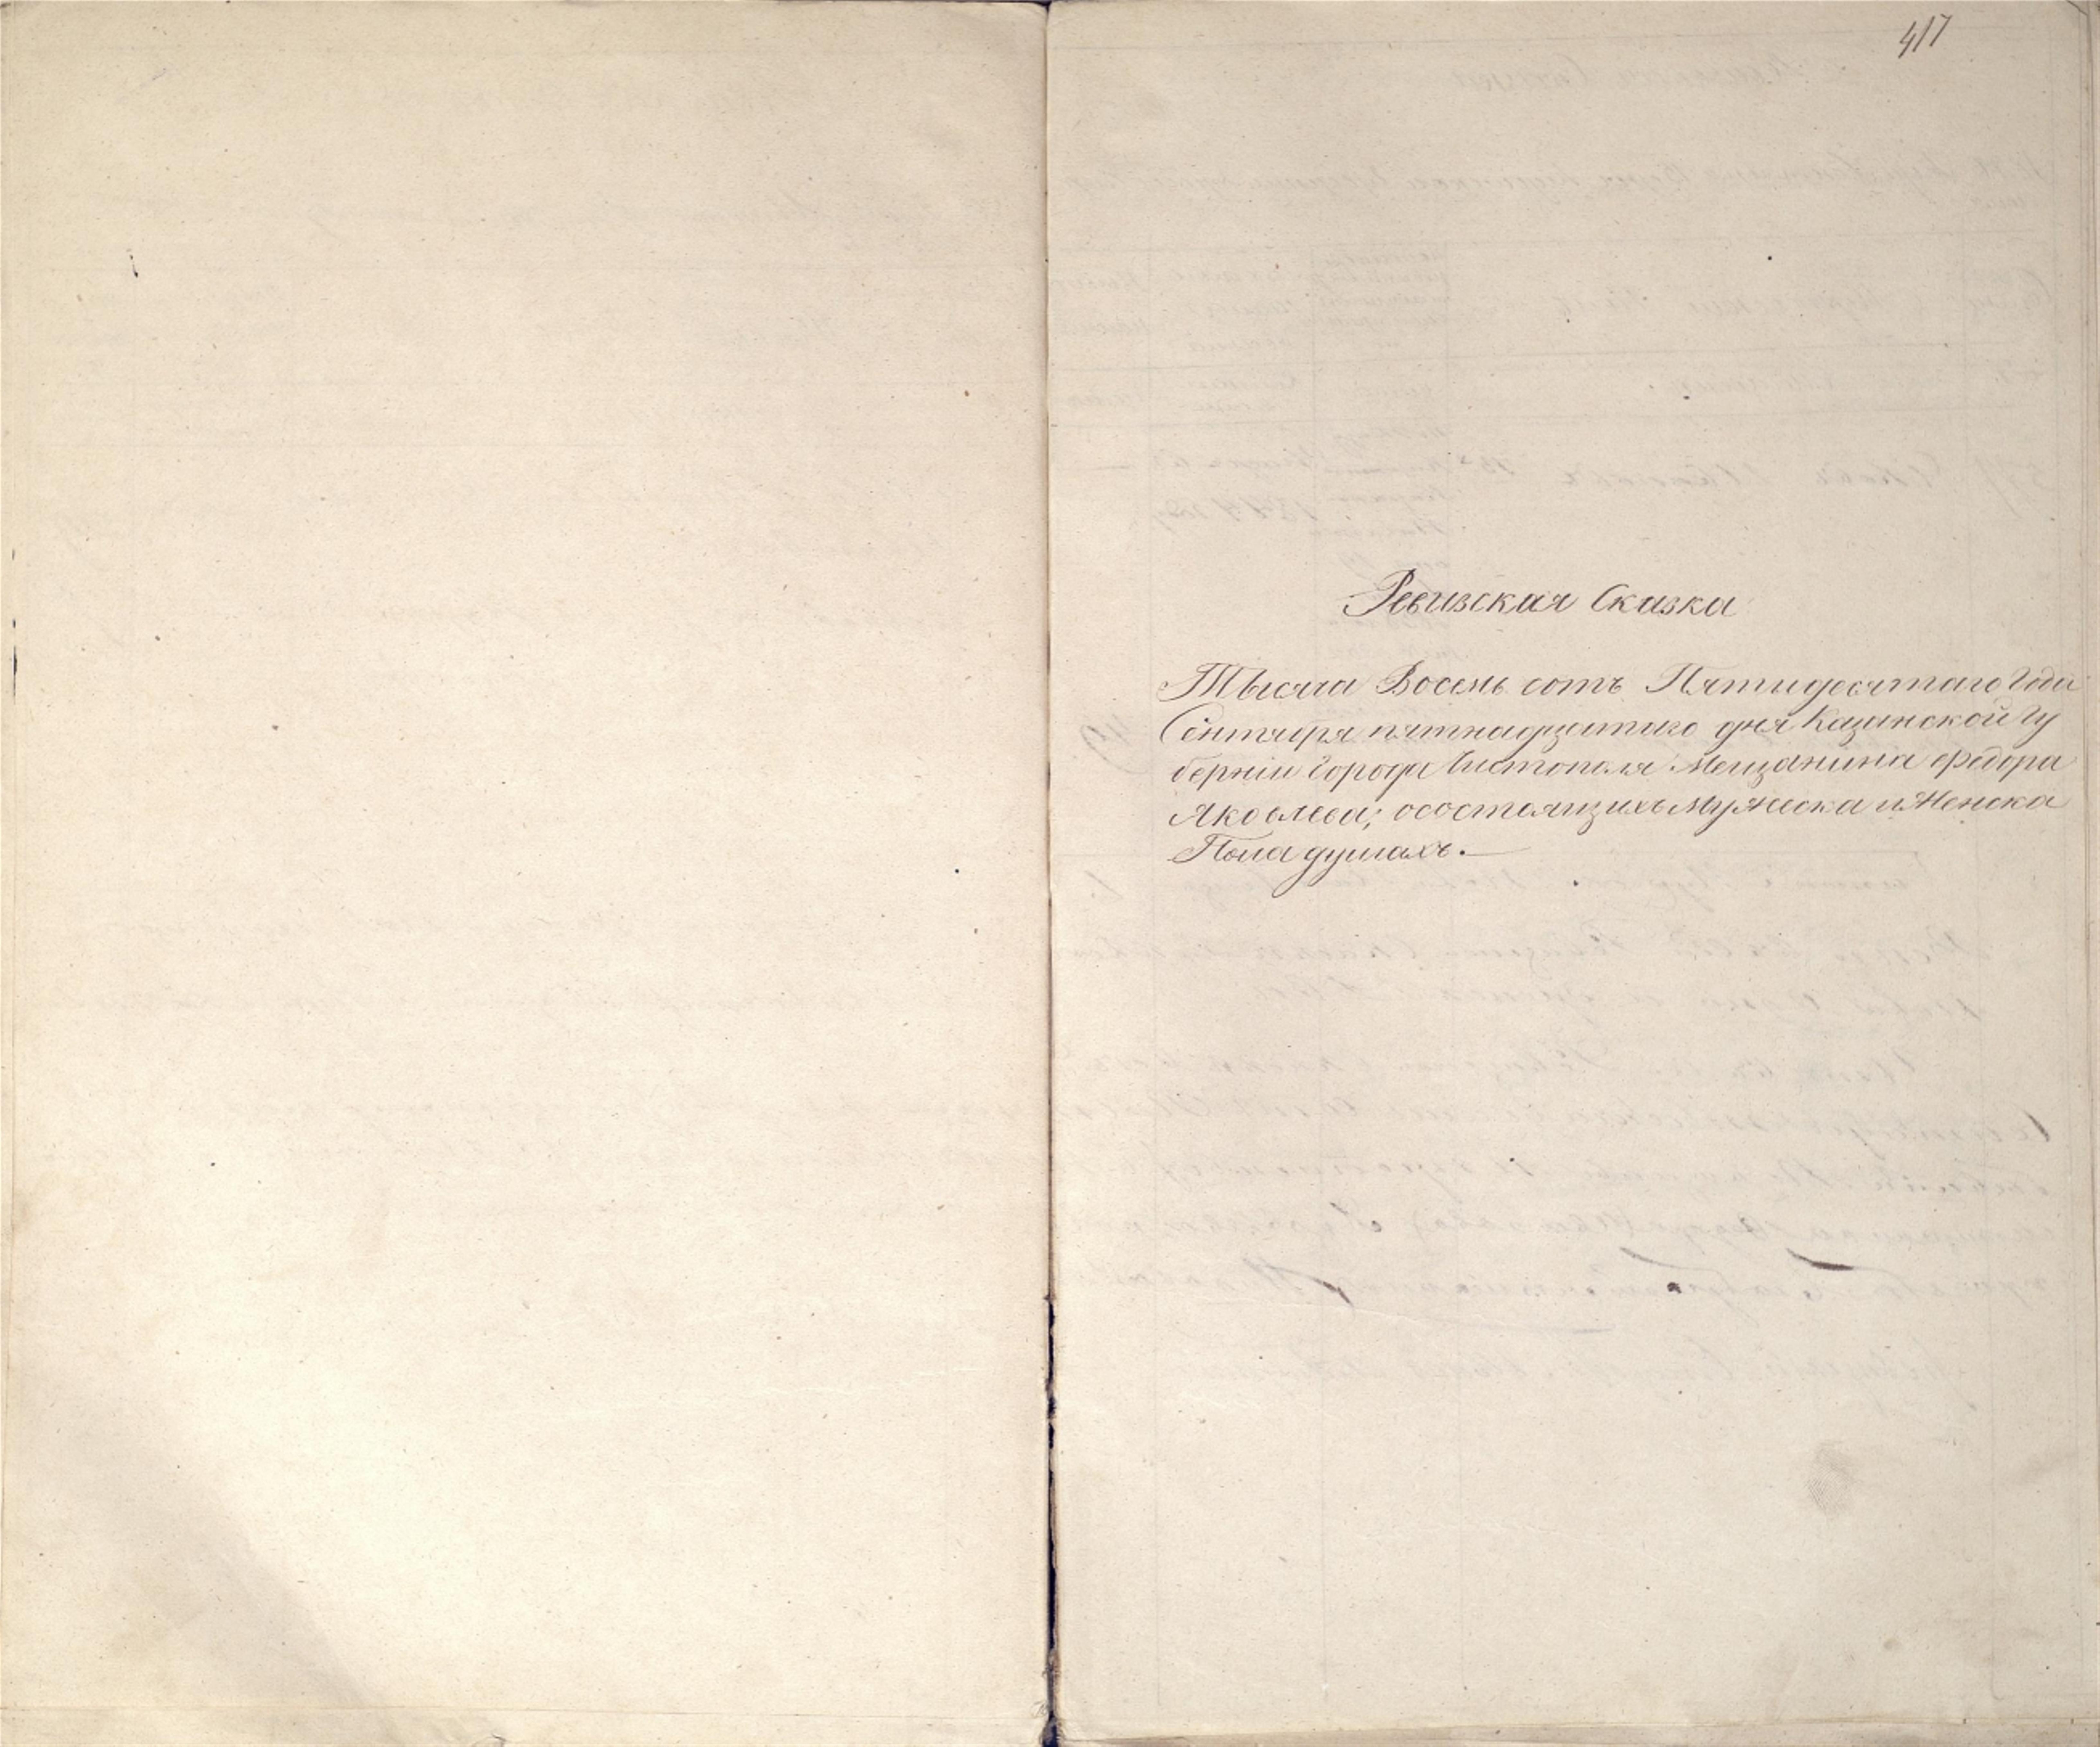 417
Ревизская Сказка
Тысяча Восемь сотъ Пятидесятаго Года
Сентября пятнадцатаго дня Казанской гу
берніи Города Чистополя Мещанина Федора
Яковлева; осостоящихъ Мужеска и Женска
Пола душахъ.—